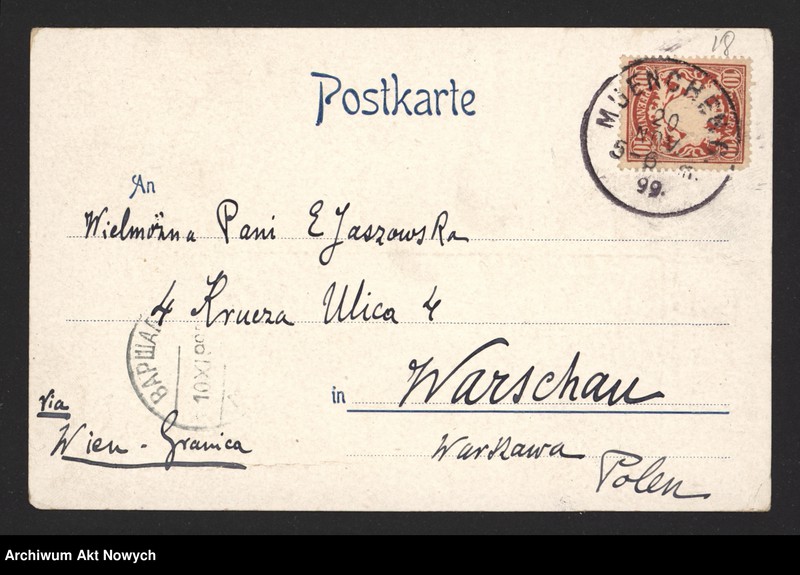 18
Postkarte
MUENCHEN
20
NOV
5-6
99.
An
Wielmożna Pani E Jaszowska
4 Krucza Ulica 4
ВАРШАВ
10 XI 99
in Warschau
via
Wien - Granica
Warszawa
Polen
Archiwum Akt Nowych